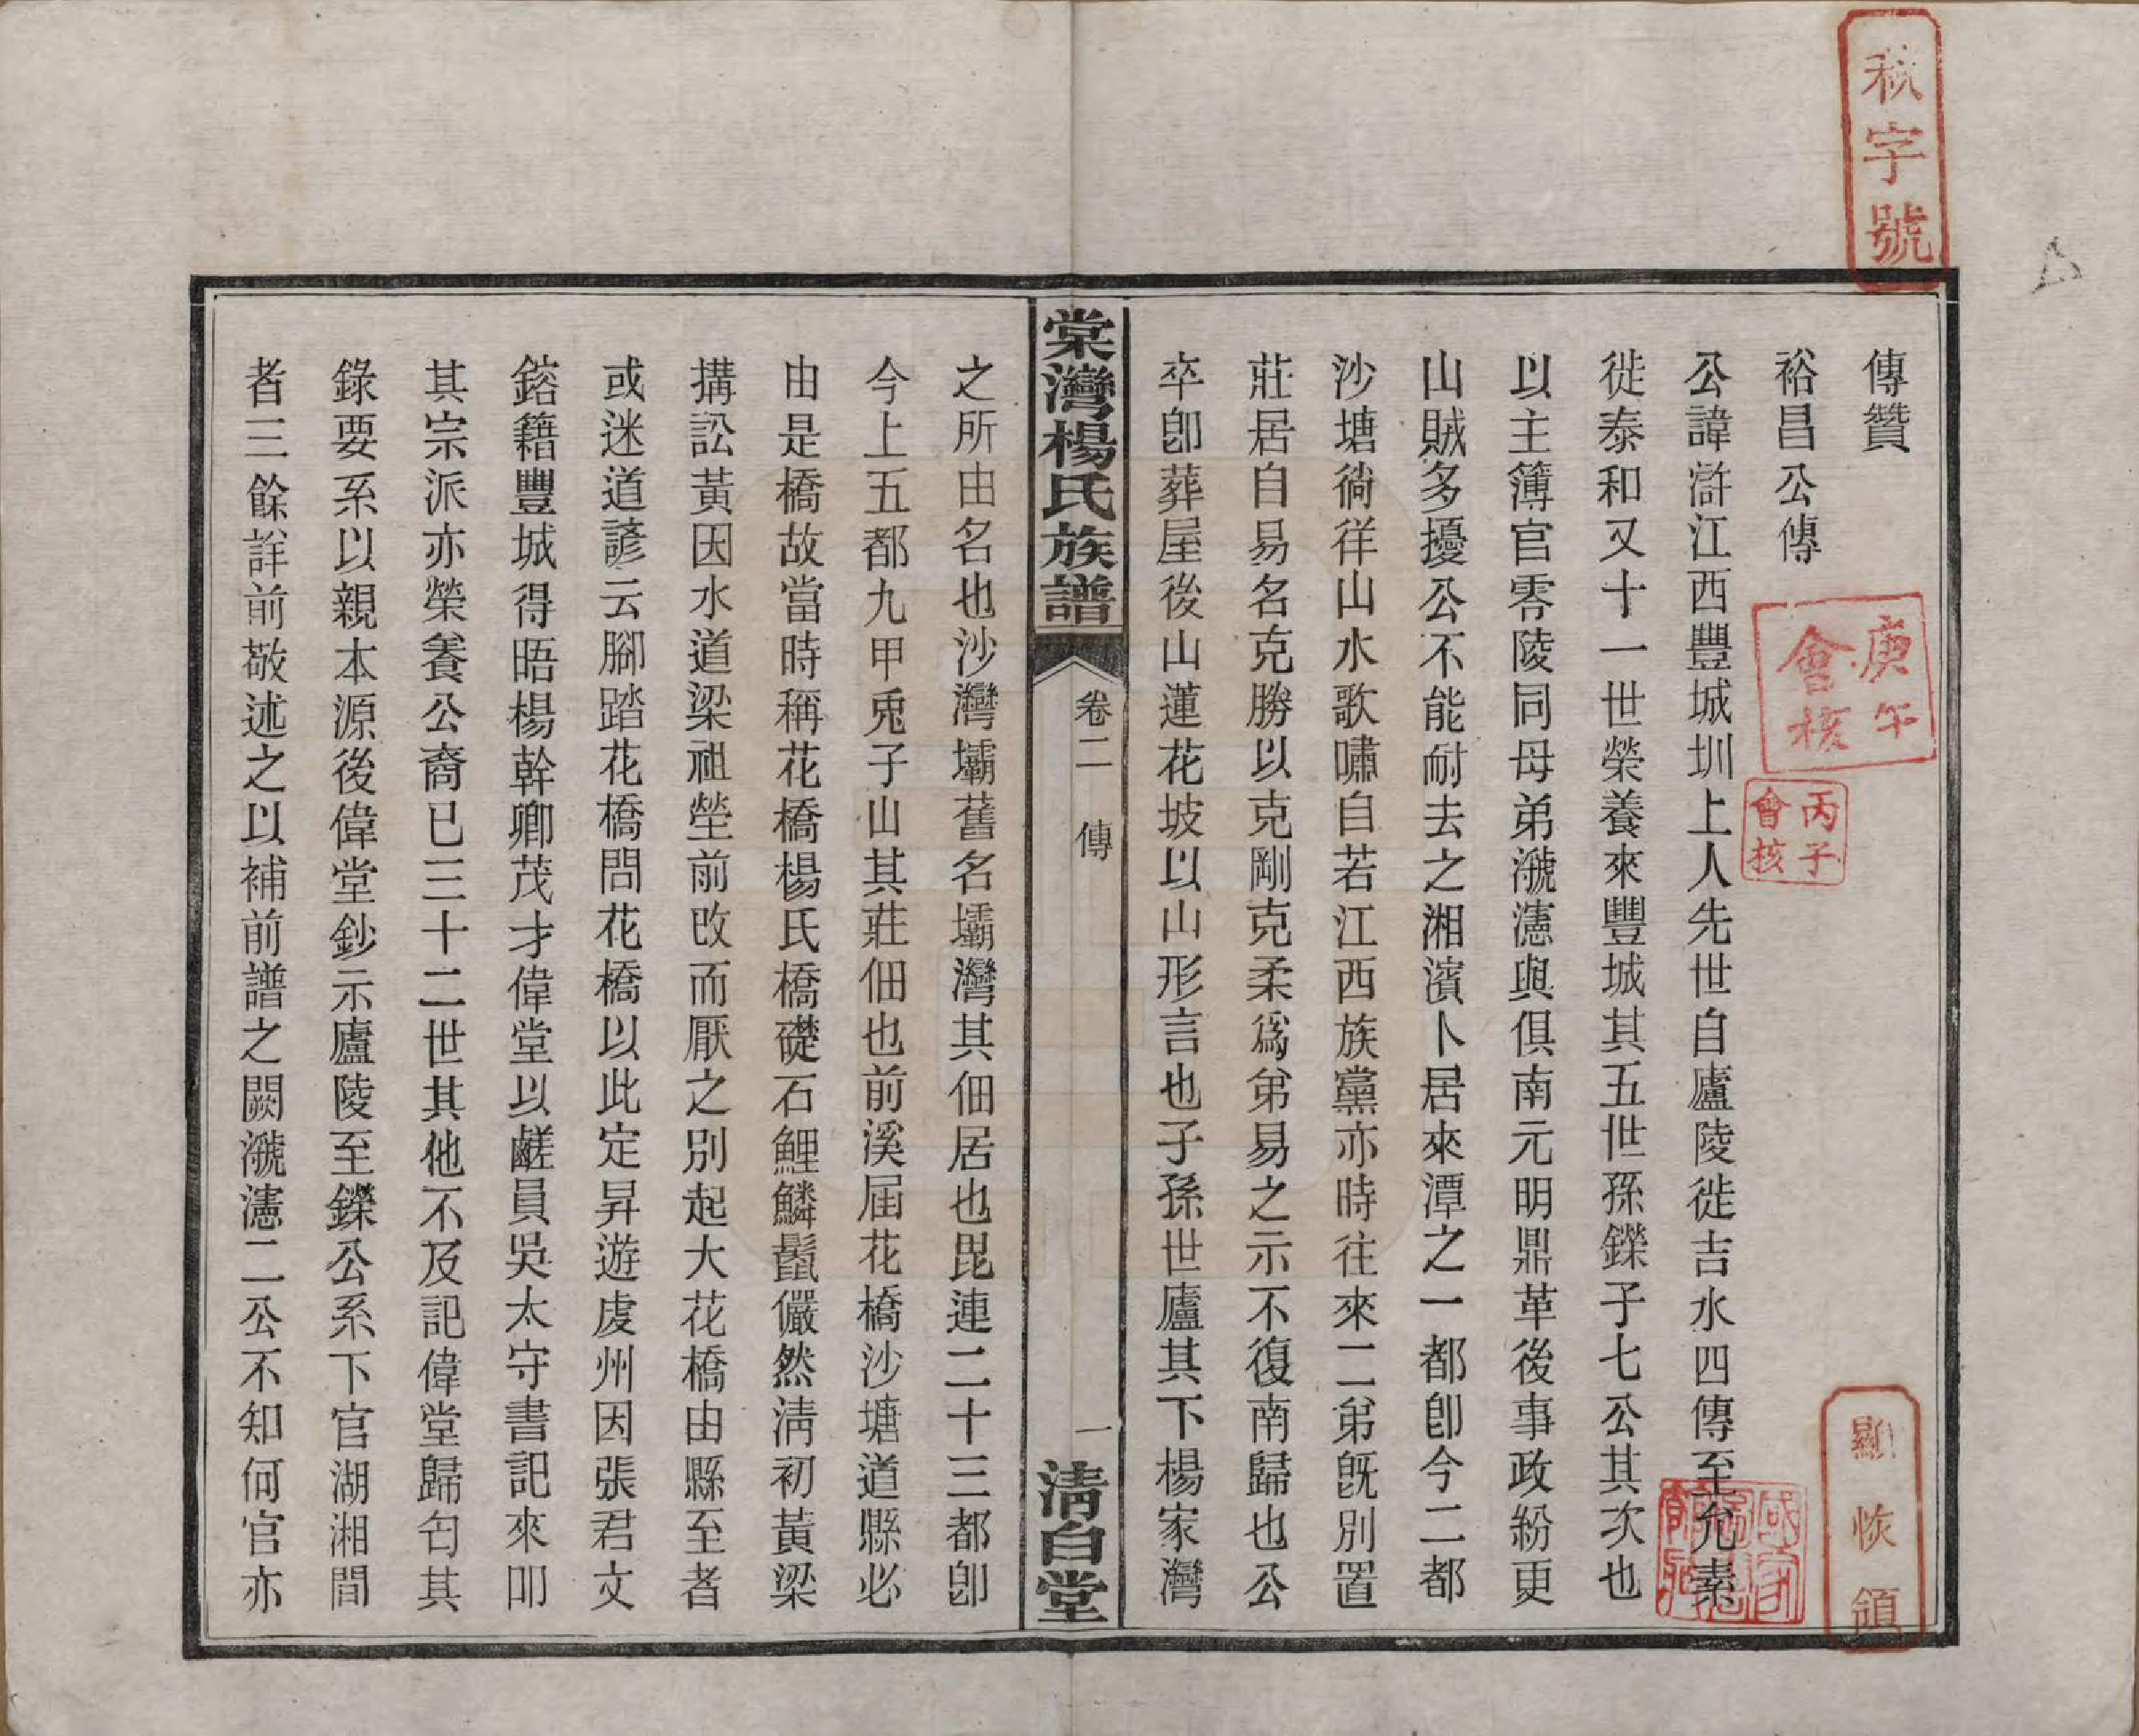 傳贊
裕昌公傳
公諱滸江西豐城圳上人先世自廬陵徙吉水四傳至允素
徙泰和又十一世榮養來豐城其五世孫鑠子七公其次也
以主簿官零陵同母弟漇濾與俱南元明鼎革後事政紛更
山賊多擾公不能耐去之湘濱卜居來潭之一都卽今二都
沙塘徜徉山水歌嘯自若江西族黨亦時往來二弟旣別置
莊居自易名克勝以克剛克柔爲弟易之示不復南歸也公
卒卽葬屋後山蓮花坡以山形言也子孫世廬其下楊家灣
棠灣楊氏族譜
卷二
傳
一
淸白堂
之所由名也沙灣壩舊名壩灣其佃居也毘連二十三都卽
今上五都九甲兎子山其莊佃也前溪屆花橋沙塘道縣必
由是橋故當時稱花橋楊氏橋礎石鯉鱗鬣儼然淸初黃梁
搆訟黃因水道梁祖塋前改而厭之別起大花橋由縣至者
或迷道諺云腳踏花橋問花橋以此定昇遊虔州因張君文
鎔籍豐城得晤楊幹卿茂才偉堂以鹺員吳太守書記來叩
其宗派亦榮養公裔已三十二世其他不及記偉堂歸匄其
錄要系以親本源後偉堂鈔示廬陵至鑠公系下官湖湘間
者三餘詳前敬述之以補前譜之闕漇濾二公不知何官亦
秘字號
庚午會核
丙子會核
顯
恢
領